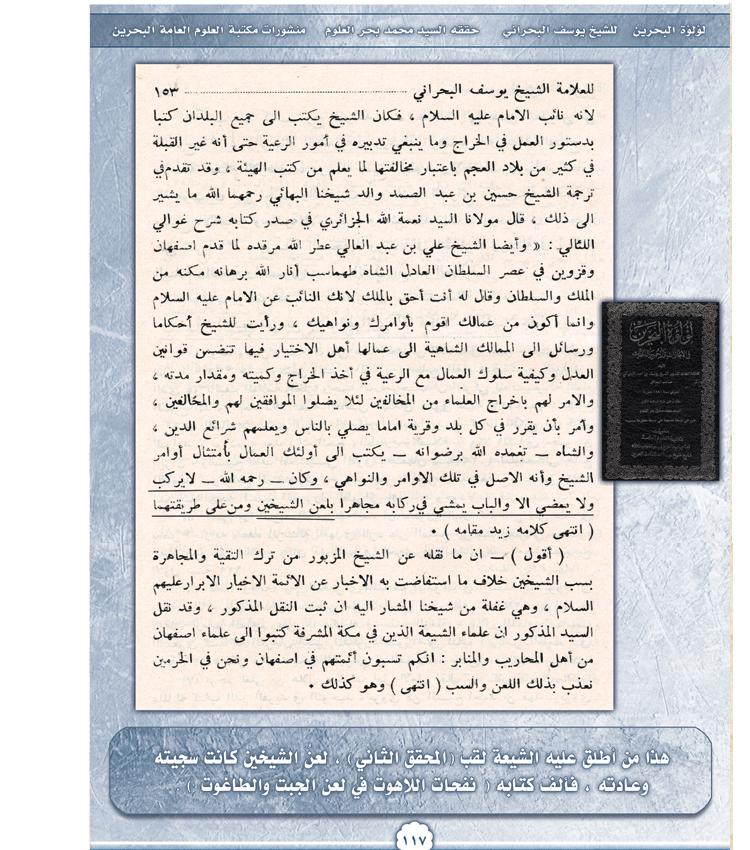 لؤلؤة البحرين للشيخ يوسف البحراني حققه السيد محمد بحر العلوم منشورات مكتبة العلوم العامة البحرين
للعلامة الشيخ يوسف البحراني ........ ١٥٣
لانه نائب الامام عليه السلام ، فكان الشيخ يكتب الى جميع البلدان كتبا
بدستور العمل في الخراج وما ينبغي تدبيره في أمور الرعية حتى أنه غير القبلة
في كثير من بلاد العجم باعتبار مخالفتها لما يعلم من كتب الهيئة ، وقد تقدم في
ترجمة الشيخ حسين بن عبد الصمد والد شيخنا البهائي رحمهما الله ما يشير
الى ذلك ، قال مولانا السيد نعمة الله الجزائري في صدر كتابه شرح غوالي
اللئالي : « وأيضا الشيخ علي بن عبد العالي عطر الله مرقده لما قدم اصفهان
وقزوين في عصر السلطان العادل الشاه طهماسب أنار الله برهانه مكنه من
الملك والسلطان وقال له أنت أحق بالملك لانك النائب عن الامام عليه السلام
وانما أكون من عمالك اقوم بأوامرك ونواهيك ، ورأيت للشيخ أحكاما
ورسائل الى الممالك الشاهية الى عمالها أهل الاختيار فيها تتضمن قوانين
العدل وكيفية سلوك العمال مع الرعية في أخذ الخراج وكميته ومقدار مدته ،
والامر لهم باخراج العلماء من المخالفين لئلا يضلوا الموافقين لهم والمخالفين ،
وأمر بأن يقرر في كل بلد وقرية اماما يصلي بالناس ويعلمهم شرائع الدين ،
والشاه – تغمده الله برضوانه – يكتب الى أولئك العمال بأمتثال أوامر
الشيخ وأنه الاصل في تلك الاوامر والنواهي ، وكان – رحمه الله – لا يركب
ولا يمضي الا والباب يمشي في ركابه مجاهرا بلعن الشيخين ومن على طريقتهما
( انتهى كلامه زيد مقامه ) .
( أقول ) – ان ما نقله عن الشيخ المزبور من ترك التقية والمجاهرة
بسب الشيخين خلاف ما استفاضت به الاخبار عن الأئمة الاخيار الابرار عليهم
السلام ، وهي غفلة من شيخنا المشار اليه ان ثبت النقل المذكور ، وقد نقل
السيد المذكور ان علماء الشيعة الذين في مكة المشرفة كتبوا الى علماء اصفهان
من أهل المحاريب والمنابر : انكم تسبون أئمتهم في اصفهان ونحن في الحرمين
نعذب بذلك اللعن والسب ( انتهى ) وهو كذلك .
لؤلؤة البحرين
هذا من أطلق عليه الشيعة لقب (المحقق الثاني) ، لعن الشيخين كانت سجيته
وعادته ، فألف كتابه ( نفحات اللاهوت في لعن الجبت والطاغوت )
١١٧